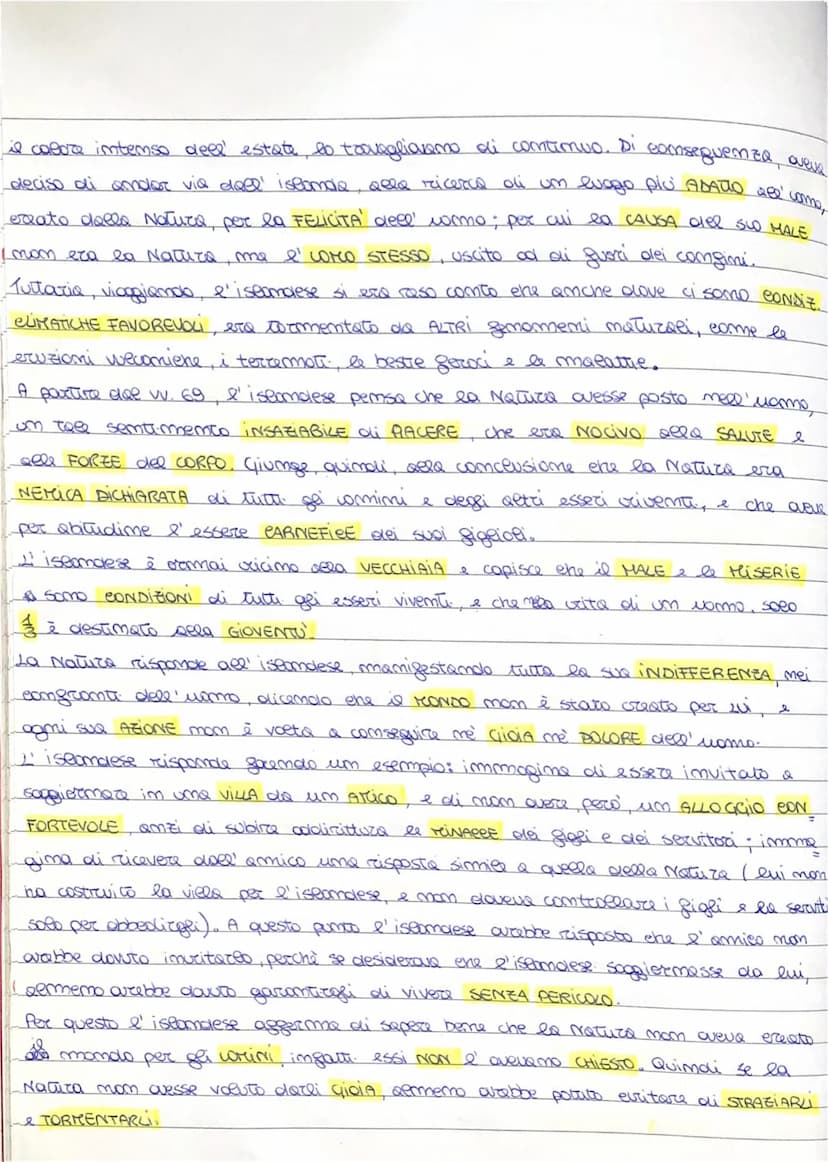 il calore intenso dell'estate, lo travagliavano di continuo. Di conseguenza, aveva
deciso di andar via dall'islanda, alla ricerca di un luogo più ADATTO all'uomo,
creato dalla Natura, per la FELICITÀ dell'uomo; per cui la CAUSA del suo MALE
non era la Natura, ma l'UOMO STESSO, uscito al di fuori dei confini.
Tuttavia, viaggiando, l'islandese si era reso conto che anche dove ci sono CONDIZ.
CLIMATICHE FAVOREVOLI, era tormentato da ALTRI fenomeni naturali, come le
eruzioni vulcaniche, i terremoti, le bestie feroci e le malattie.
A partire dal vv. 69, l'islandese pensa che la Natura avesse posto nell'uomo,
un tale sentimento INSAZIABILE di PIACERE, che era NOCIVO alla SALUTE e
alle FORZE del CORPO. Giunge, quindi, alla conclusione che la Natura era
NEMICA DICHIARATA di tutti gli uomini e degli altri esseri viventi, e che aveva
per abitudine l'essere CARNEFICE dei suoi figlioli.
L'islandese è ormai vicino alla VECCHIAIA e capisce che il MALE e le MISERIE
sono CONDIZIONI di tutti gli esseri viventi, e che nella vita di un uomo, solo
1/3 è destinato alla GIOVENTÙ.
La Natura risponde all'islandese, manifestando tutta la sua INDIFFERENZA, nei
confronti dell'uomo, dicendo che il MONDO non è stato creato per lui, e
ogni sua AZIONE non è volta a conseguire nè GIOIA nè DOLORE dell'uomo.
L'islandese risponde facendo un esempio: immagina di essere invitato a
soggiornare in una VILLA da un AMICO, e di non avere, però, un ALLOGGIO CON=
FORTEVOLE, anzi di subire addirittura le MINACCE dei figli e dei servitori; imma=
gina di ricevere dall'amico una risposta simile a quella della Natura (lui non
ha costruito la villa per l'islandese, e non doveva controllare i figli e la servitù
solo per obbedirgli). A questo punto l'islandese avrebbe risposto che l'amico non
avrebbe dovuto invitarlo, perchè se desiderava che l'islandese soggiornasse da lui,
almeno avrebbe dovuto garantirgli di vivere SENZA PERICOLO.
Per questo l'islandese afferma di sapere bene che la Natura non aveva creato
il mondo per gli UOMINI, infatti essi NON l'avevano CHIESTO. Quindi se la
Natura non avesse voluto darli GIOIA, almeno avrebbe potuto evitare di STRAZIARLI
e TORMENTARLI.